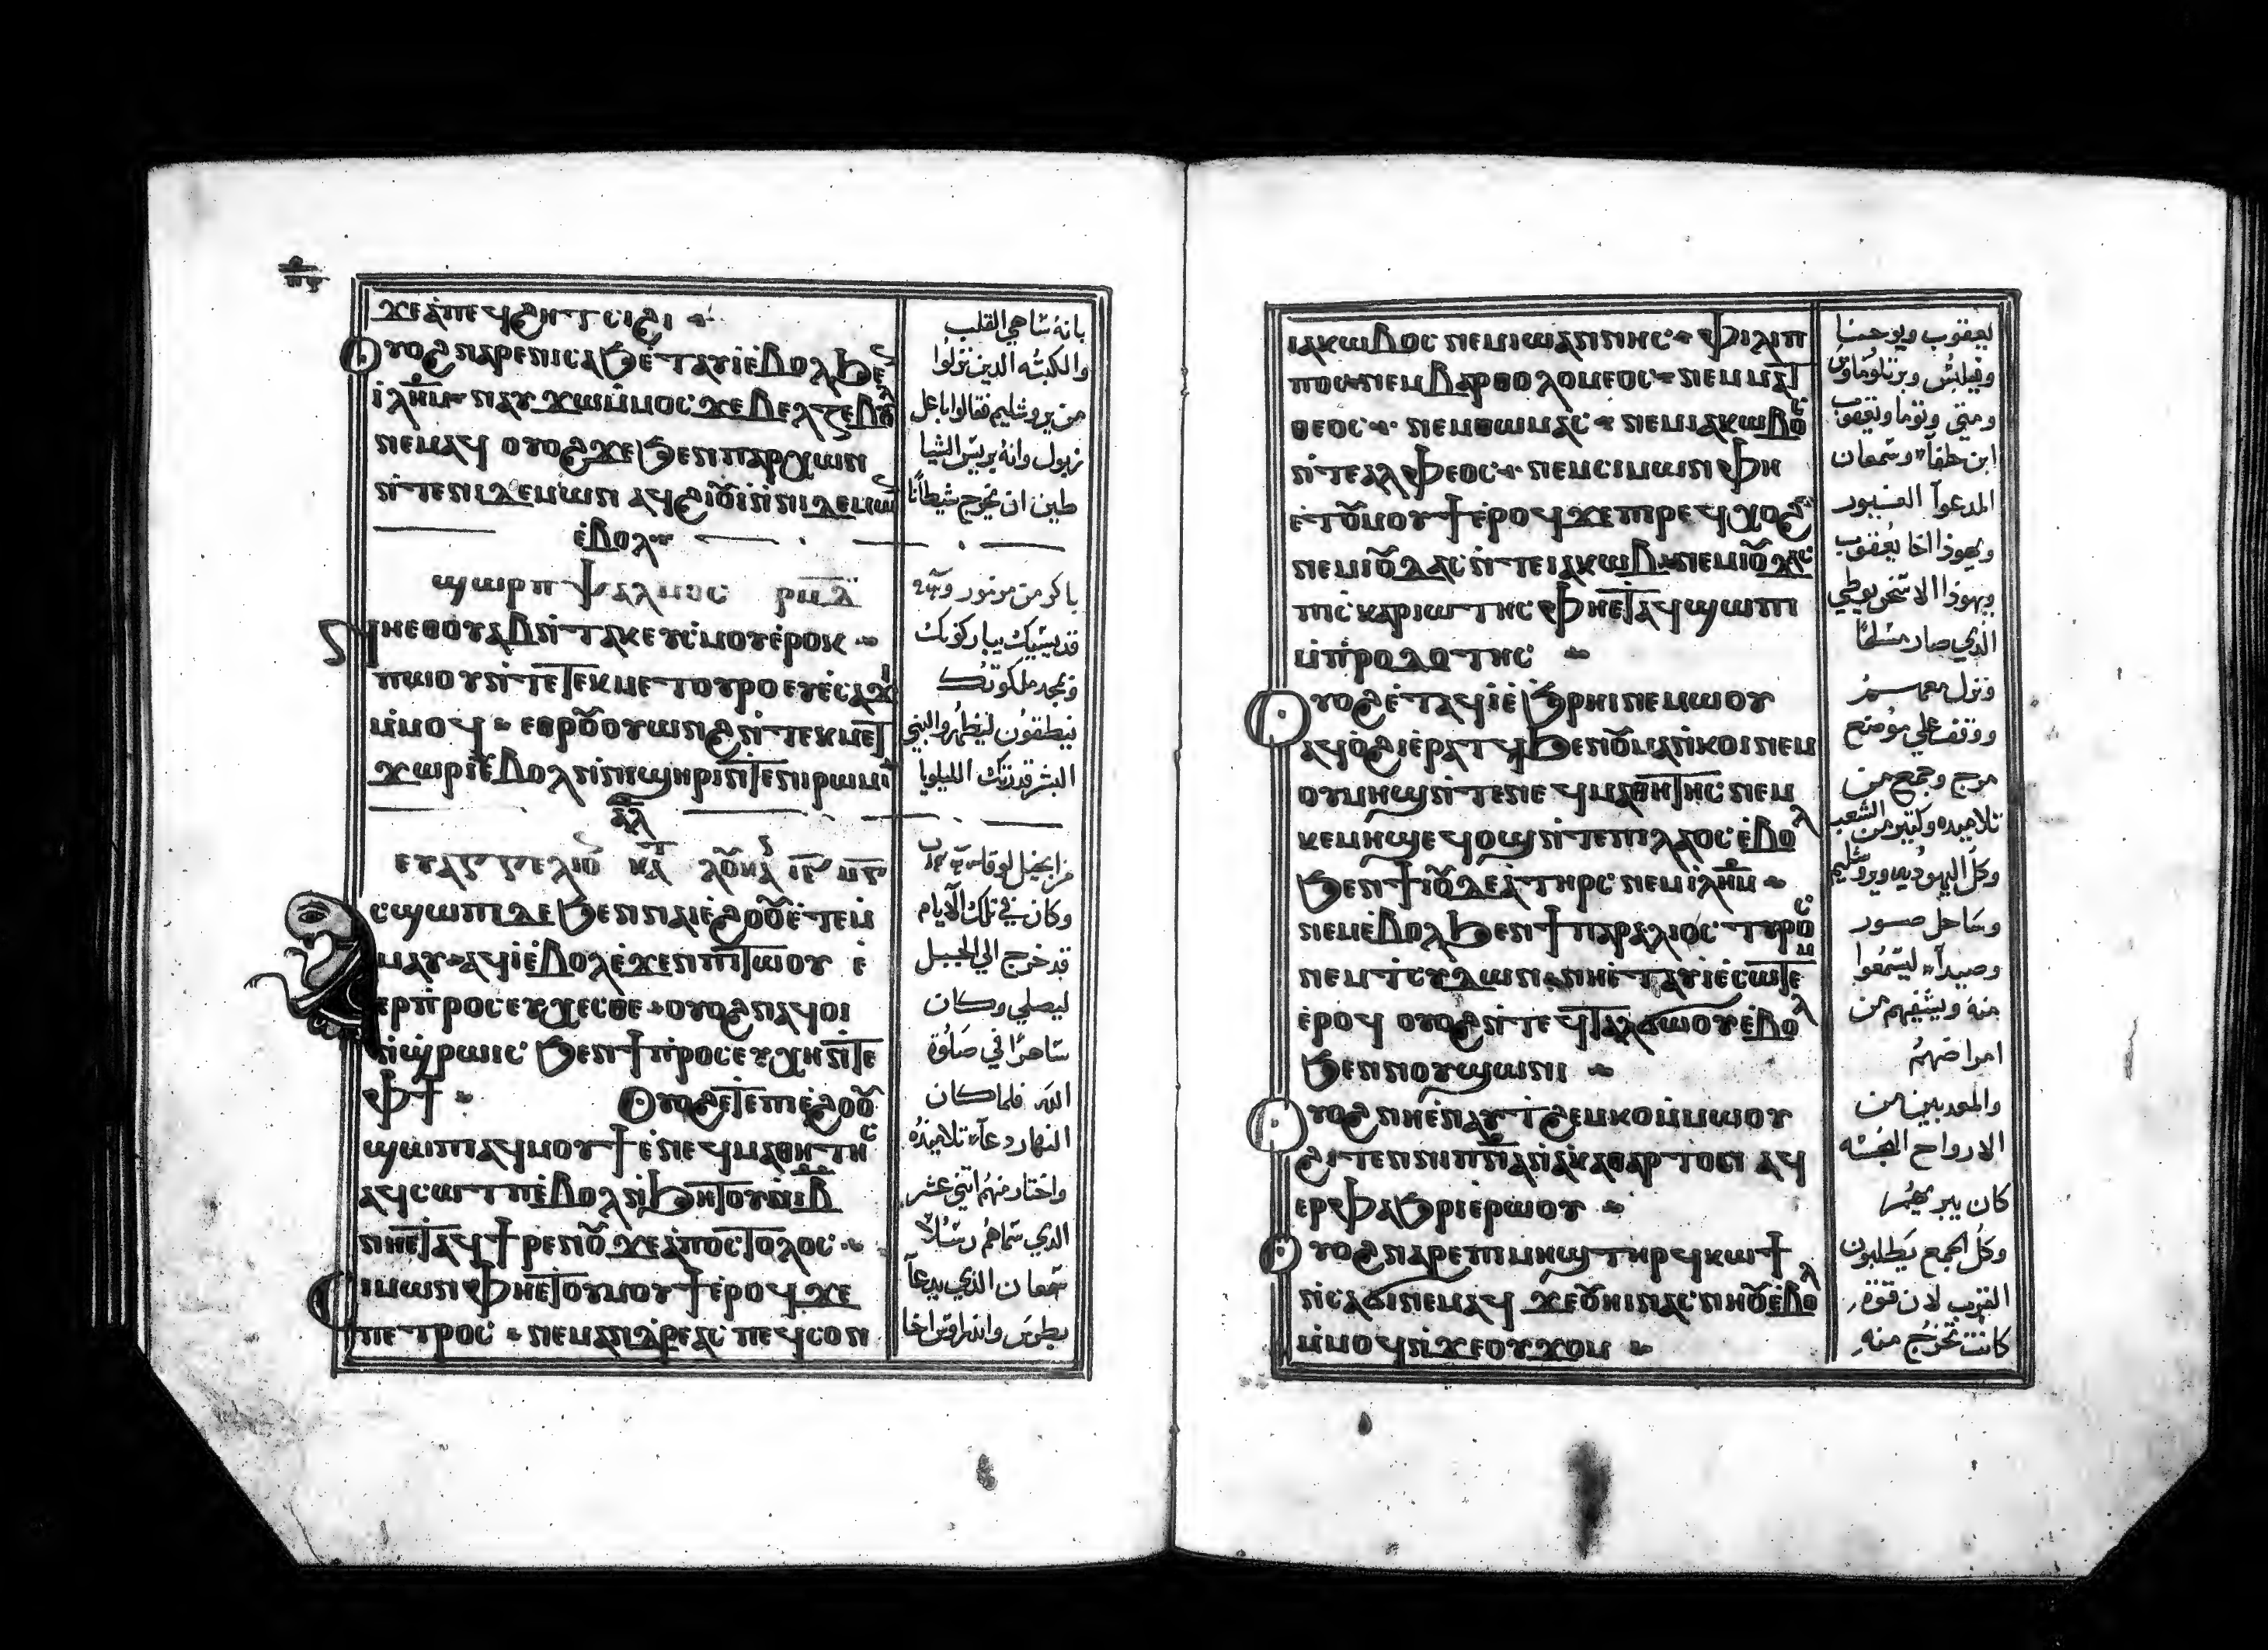 ϫⲉⲁ̀ⲡⲉϥϩⲏⲧⲥⲓϩⲓ
ⲟⲩⲟϩⲛⲁⲣⲉⲛⲓⲥⲁϧⲉ̀ⲧⲁⲩⲓ̀ⲉ̀ⲃⲟⲗϧⲉ
ⲓⲗⲏⲙ ⲛⲁⲩϫⲱⲙ̀ⲙⲟⲥϫⲉⲃⲉⲗⲍⲉⲃⲟⲩⲗ
ⲛⲉⲙⲁϥ ⲟⲩⲟϩϫⲉϧⲉⲛⲡⲁⲣⲭⲱⲛ
ⲛ̀ⲧⲉⲛⲓⲇⲉⲙⲱⲛ ⲁϥϩⲓⲟⲩⲓ̀ⲛ̀ⲛⲓⲇⲉⲙⲱ
ⲉ̀ⲃⲟⲗ
ϣⲱⲣⲡ ⲯⲁⲗⲙⲟⲥ ⲣⲙⲇ
ⲛⲏⲉⲑⲟⲩⲁⲃⲛ̀ⲧⲁⲕⲉⲩⲥ̀ⲙⲟⲩⲉ̀ⲣⲟⲕ
ⲡⲱⲟⲩⲛ̀ⲧⲉⲧⲉⲕⲙⲉⲧⲟⲩⲣⲟⲉⲩⲉ̀ⲥⲁϫⲓ
ⲙ̀ⲙⲟϥ ⲉⲑⲣⲟⲩⲟⲩⲱⲛϩⲛ̀ⲧⲉⲕⲙⲉⲧ
ϫⲱⲣⲓⲉ̀ⲃⲟⲗⲛ̀ⲛⲓϣⲏⲣⲓⲛ̀ⲧⲉⲛⲓⲣⲱⲙⲓ
ⲁⲗ
ⲉⲩⲁⲅⲅⲉⲗⲓⲟ ⲕⲁⲧ ⲗⲟⲩⲕⲁ
ⲥϣⲱⲡⲓⲇⲉϧⲉⲛⲛⲁⲓⲉ̀ϩⲟⲟⲩⲉ̀ⲧⲉⲙ̀
ⲙⲁⲩ ⲁϥⲓ̀ⲉ̀ⲃⲟⲗⲉ̀ϫⲉⲛⲡⲓⲧⲱⲟⲩ ⲉ̀
ⲉⲣⲡ̀ⲣⲟⲥⲉⲩⲭⲉⲥⲑⲉ ⲟⲩⲟϩⲛⲁϥⲟⲓ
ⲛ̀ϣⲣⲱⲓⲥ ϧⲉⲛϯⲡ̀ⲣⲟⲥⲉⲩⲭⲏⲛ̀ⲧⲉ
ⲫϯ ⲟⲩⲟϩⲉ̀ⲧⲉⲡⲓⲉ̀ϩⲟⲟⲩ
ϣⲱⲡⲓⲁϥⲙⲟⲩϯⲉ̀ⲛⲉϥⲙⲁⲑⲏⲧⲏⲥ
ⲁϥⲥⲱⲧⲡⲉ̀ⲃⲟⲗⲛ̀ϧⲏⲧⲟⲩⲛ̀ⲓⲃ
ⲛⲏⲉ̀ⲧⲁϥϯⲣⲉⲛⲟⲩϫⲉⲁ̀ⲡⲟⲥⲧⲟⲗⲟⲥ
ⲥⲓⲙⲱⲛⲫⲏⲉ̀ⲧⲟⲩⲙⲟⲩϯⲉ̀ⲣⲟϥϫⲉ
ⲡⲉⲧⲣⲟⲥ ⲛⲉⲙⲁⲛⲇⲣⲉⲁⲥ ⲡⲉϥⲥⲟⲛ
بانه ساهي القلب
والكتبه الدين نزلوا
من يروشليم فقالوا باعل
زبول وانه بريس الشيا
طين ان يخرج شيطانا
باكر من مزمور
قديسيك يباركونك
ومجد ملكوتك
ينطقون ليظهروا البني
البشر قدرتك الليلويا
من انجيل لوقا
وكان في تلك الايام
قد خرج الي الجبل
ليصلي وكان
ساهرا في صلوة
الله فلما كان
النهار دعا تلاميذه
واختار منهم اثني عشر
الدي سماهم رسلا
سمعان الدي يدعا
بطرس واندراوس اخا
ⲓⲁⲕⲱⲃⲟⲥ ⲛⲉⲙⲓⲱⲁⲛⲛⲏⲥ ⲫⲓⲗⲓⲡ
ⲡⲟⲥ ⲛⲉⲙⲃⲁⲣⲑⲟⲗⲟⲙⲉⲟⲥ ⲛⲉⲙⲙⲁⲧ
ⲑⲉⲟⲥ ⲛⲉⲙⲑⲱⲙⲁⲥ ⲛⲉⲙⲓⲁⲕⲱⲃⲟⲥ
ⲛ̀ⲧⲉⲁⲗⲫⲉⲟⲥ ⲛⲉⲙⲥⲓⲙⲱⲛ ⲫⲏ
ⲉ̀ⲧⲟⲩⲙⲟⲩϯⲉ̀ⲣⲟϥϫⲉⲡⲓⲣⲉϥⲭⲟϩ
ⲛⲉⲙⲓⲟⲩⲇⲁⲥⲛ̀ⲧⲉⲓⲁⲕⲱⲃ ⲛⲉⲙⲓⲟⲩⲇⲁⲥ
ⲡⲓⲥ̀ⲕⲁⲣⲓⲱⲧⲏⲥ ⲫⲏⲉ̀ⲧⲁϥϣⲱⲡⲓ
ⲙ̀ⲡ̀ⲣⲟⲇⲟⲧⲏⲥ
ⲟⲩⲟϩⲉ̀ⲧⲁϥⲓ̀ⲉ̀ϧⲣⲏⲓⲛⲉⲙⲱⲟⲩ
ⲁϥⲟ̀ϩⲓⲉ̀ⲣⲁⲧϥϧⲉⲛⲟⲩⲙⲁⲛ̀ⲕⲟⲓⲛⲉⲙ
ⲟⲩⲙⲏϣⲛ̀ⲧⲉⲛⲉϥⲙⲁⲑⲏⲧⲏⲥ ⲛⲉⲙ
ⲕⲉⲙⲏϣⲉϥⲟϣⲛ̀ⲧⲉⲡⲓⲗⲁⲟⲥ ⲉ̀ⲃⲟⲗ
ϧⲉⲛϯⲓⲟⲩⲇⲉⲁⲧⲏⲣⲥ ⲛⲉⲙⲓⲗⲏⲙ
ⲛⲉⲙⲉ̀ⲃⲟⲗϧⲉⲛϯⲡⲁⲣⲁⲗⲓⲟⲥ ⲧⲩⲣⲟⲥ
ⲛⲉⲙⲧ̀ⲥⲩⲇⲱⲛ ⲛⲏⲉ̀ⲧⲁⲩⲓ̀ⲉ̀ⲥⲱⲧⲉⲙ
ⲉ̀ⲣⲟϥ ⲟⲩⲟϩⲛ̀ⲧⲉϥⲧⲁⲗϭⲱⲟⲩⲉ̀ⲃⲟⲗ
ϧⲉⲛⲛⲟⲩϣⲱⲛⲓ
ⲟⲩⲟϩⲛⲏⲉ̀ⲛⲁⲩⲧ̀ϩⲉⲙⲕⲟⲙ̀ⲙⲱⲟⲩ
ϩⲓⲧⲉⲛⲛⲓⲡⲛⲁⲛ̀ⲁⲕⲁⲑⲁⲣⲧⲟⲛ ⲁϥ
ⲉⲣⲫⲁϧⲣⲓⲉ̀ⲣⲱⲟⲩ
ⲟⲩⲟϩⲛⲁⲣⲉⲡⲓⲙⲏϣⲧⲏⲣϥⲕⲱϯ
ⲛ̀ⲥⲁϭⲓⲛⲉⲙⲁϥ ϫⲉⲟⲩⲏⲓⲛⲁⲥⲛⲏⲟⲩⲉ̀ⲃⲟⲗ
ⲙ̀ⲙⲟϥⲛ̀ϫⲉⲟⲩϫⲟⲙ
يعقوب ويوحنا
وفيلبس وبرتلوماوس
ومتي وتوما ويعقوب
ابن حلفا وسمعان
المدعوا الغيور
ويهوذا اخا يعقوب
ويهوذا الاسخريوطي
الذي صار مسلما
ونزل معهم
ووقف علي موضع
مرج وجمع من
تلاميذه وكثير من الشعب
وكل اليهوديه ويروشليم
وساحل صور
وصيدا ليسمعوا
منه ويشفيهم من
امراضهم
والمعدبين من
الارواح النجسه
كان يبريهم
وكل الجمع يطلبون
القرب لان قوة
كانت تخرج منه